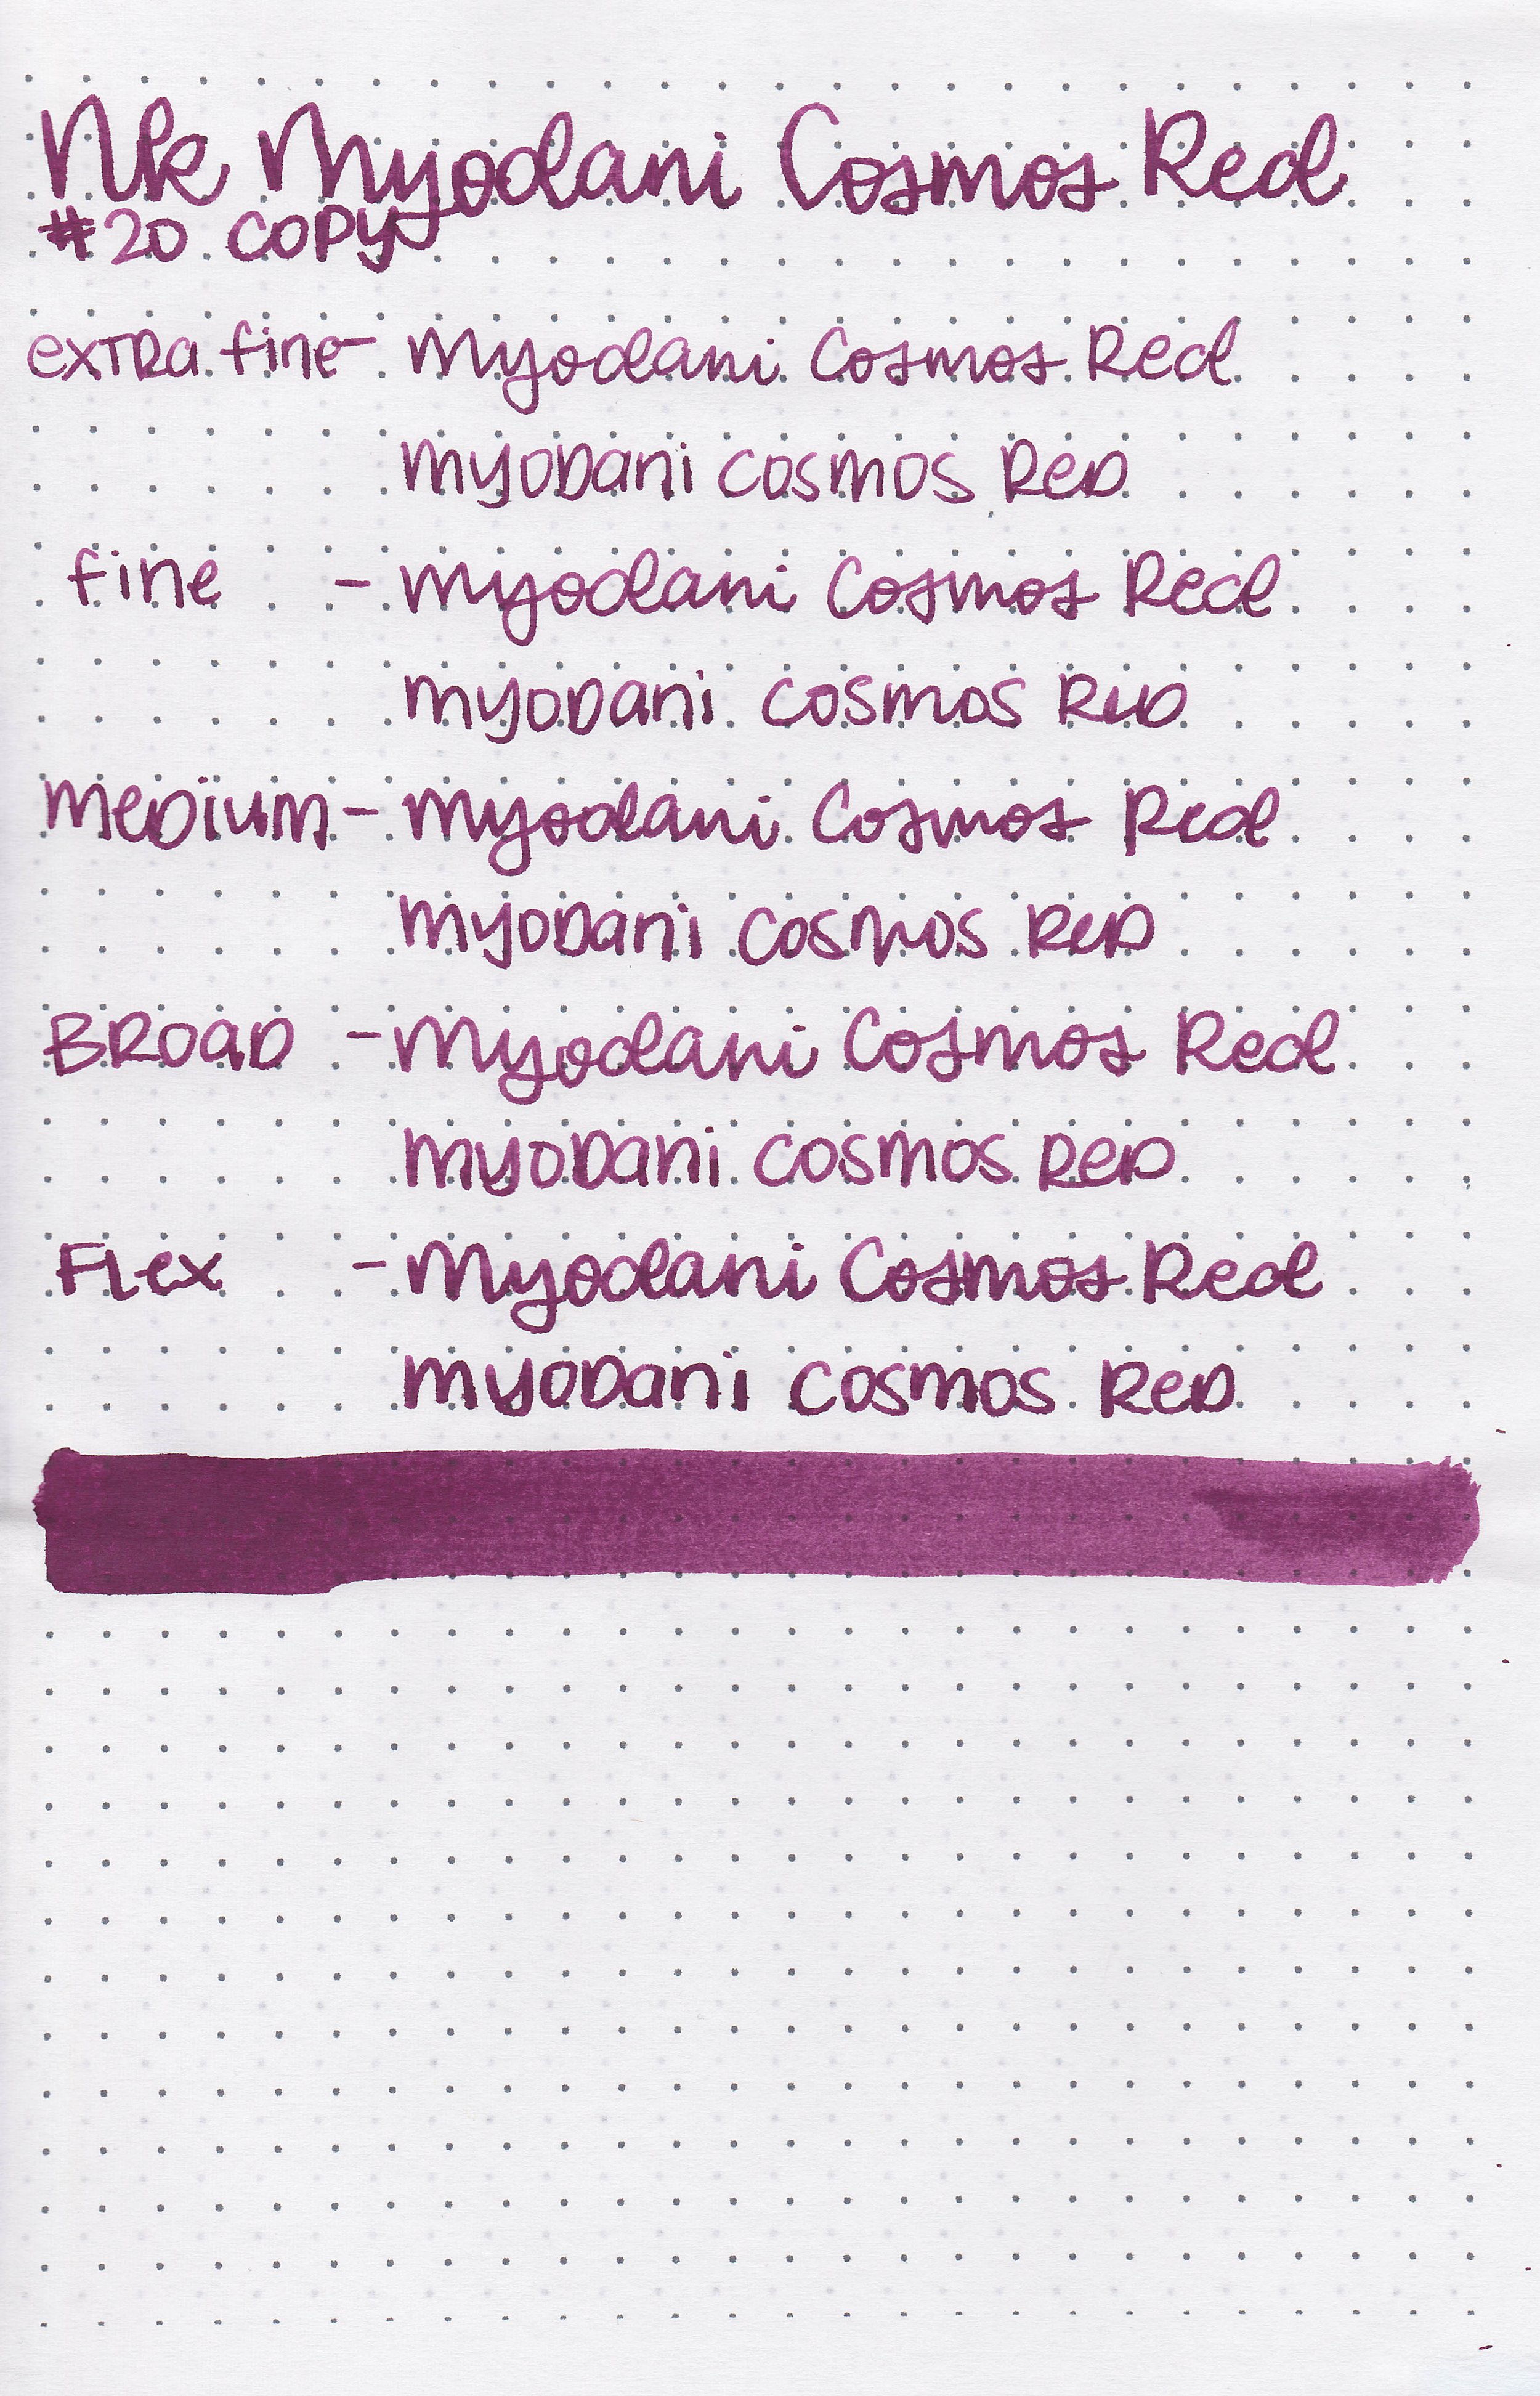 Nk Myodani Cosmos Red
#20 COPY
extra fine - Myodani Cosmos Red
Myodani Cosmos Red
fine - Myodani Cosmos Red
Myodani Cosmos Red
Medium - Myodani Cosmos Red
Myodani Cosmos Red
BROAD - Myodani Cosmos Red
Myodani Cosmos Red
Flex - Myodani Cosmos Red
Myodani Cosmos Red